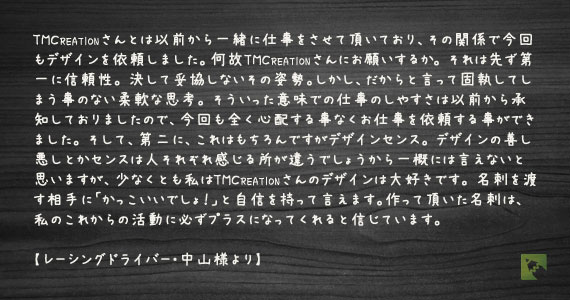 TMCREATIONさんとは以前から一緒に仕事をさせて頂いており、その関係で今回
もデザインを依頼しました。何故TMCREATIONさんにお願いするか。それは先ず第
一に信頼性。決して妥協しないその姿勢。しかし、だからと言って固執してし
まう事のない柔軟な思考。そういった意味での仕事のしやすさは以前から承
知しておりましたので、今回も全く心配する事なくお仕事を依頼する事ができ
ました。そして、第二に、これはもちろんですがデザインセンス。デザインの善し
悪しとかセンスは人それぞれ感じる所が違うでしょうから一概には言えないと
思いますが、少なくとも私はTMCREATIONさんのデザインは大好きです。名刺を渡
す相手に「かっこいいでしょ!」と自信を持って言えます。作って頂いた名刺は、
私のこれからの活動に必ずプラスになってくれると信じています。
【レーシングドライバー・中山様より】